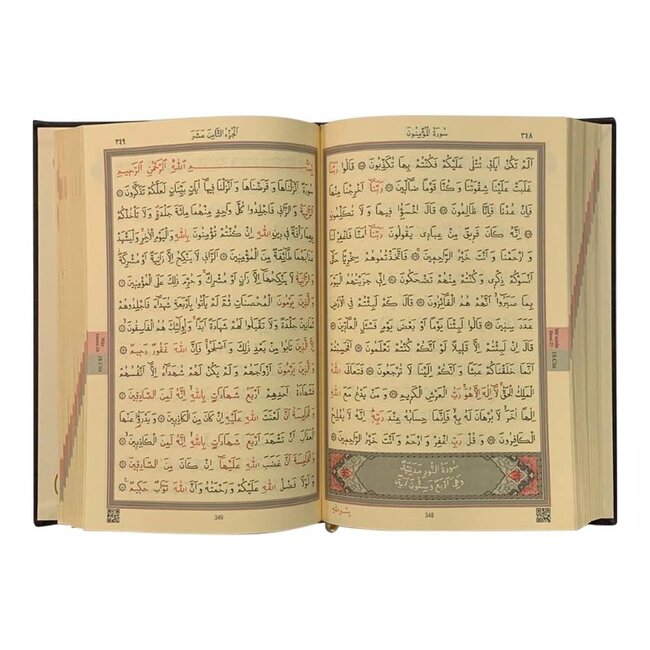 ٣٤٨
سُورَةُ الْمُؤْمِنُونَ
اَلَمْ تَكُنْ اٰيَاتِي تُتْلٰى عَلَيْكُمْ فَكُنْتُمْ بِهَا تُكَذِّبُونَ ۞ قَالُوا رَبَّنَا
غَلَبَتْ عَلَيْنَا شِقْوَتُنَا وَكُنَّا قَوْمًا ضَٓالِّينَ ۞ رَبَّنَٓا اَخْرِجْنَا مِنْهَا
فَاِنْ عُدْنَا فَاِنَّا ظَالِمُونَ ۞ قَالَ اخْسَؤُ۫ا فِيهَا وَلَا تُكَلِّمُونِ
۞ اِنَّهُ كَانَ فَرِيقٌ مِنْ عِبَادِي يَقُولُونَ رَبَّنَٓا اٰمَنَّا فَاغْفِرْ لَنَا
وَارْحَمْنَا وَاَنْتَ خَيْرُ الرَّاحِمِينَ ۞ فَاتَّخَذْتُمُوهُمْ سِخْرِيًّا حَتّٰٓى
اَنْسَوْكُمْ ذِكْرِي وَكُنْتُمْ مِنْهُمْ تَضْحَكُونَ ۞ اِنِّي جَزَيْتُهُمُ الْيَوْمَ
بِمَا صَبَرُٓوا اَنَّهُمْ هُمُ الْفَٓائِزُونَ ۞ قَالَ كَمْ لَبِثْتُمْ فِي الْاَرْضِ
عَدَدَ سِنِينَ ۞ قَالُوا لَبِثْنَا يَوْمًا اَوْ بَعْضَ يَوْمٍ فَسْـَٔلِ الْعَٓادِّينَ ۞
قَالَ اِنْ لَبِثْتُمْ اِلَّا قَلِيلًا لَوْ اَنَّكُمْ كُنْتُمْ تَعْلَمُونَ ۞
اَفَحَسِبْتُمْ اَنَّمَا خَلَقْنَاكُمْ عَبَثًا وَاَنَّكُمْ اِلَيْنَا لَا تُرْجَعُونَ ۞ فَتَعَالَى اللّٰهُ
الْمَلِكُ الْحَقُّ لَٓا اِلٰهَ اِلَّا هُوَ رَبُّ الْعَرْشِ الْكَرِيمِ ۞ وَمَنْ يَدْعُ مَعَ اللّٰهِ
اِلٰهًا اٰخَرَ لَا بُرْهَانَ لَهُ بِهِ فَاِنَّمَا حِسَابُهُ عِنْدَ رَبِّهِ اِنَّهُ لَا يُفْلِحُ
الْكَافِرُونَ ۞ وَقُلْ رَبِّ اغْفِرْ وَارْحَمْ وَاَنْتَ خَيْرُ الرَّاحِمِينَ ۞
سُورَةُ النُّورِ مَدَنِيَّةٌ
وَهِيَ اَرْبَعٌ وَسِتُّونَ اٰيَةً
348
٣٤٩
اَلْجُزْءُ الثَّامِنَ عَشَرَ
بِسْمِ اللّٰهِ الرَّحْمٰنِ الرَّحِيمِ
سُورَةٌ اَنْزَلْنَاهَا وَفَرَضْنَاهَا وَاَنْزَلْنَا فِيهَٓا اٰيَاتٍ بَيِّنَاتٍ لَعَلَّكُمْ تَذَكَّرُونَ ۞
اَلزَّانِيَةُ وَالزَّانِي فَاجْلِدُوا كُلَّ وَاحِدٍ مِنْهُمَا مِائَةَ جَلْدَةٍ وَلَا تَأْخُذْكُمْ
بِهِمَا رَأْفَةٌ فِي دِينِ اللّٰهِ اِنْ كُنْتُمْ تُؤْمِنُونَ بِاللّٰهِ وَالْيَوْمِ الْاٰخِرِ وَلْيَشْهَدْ
عَذَابَهُمَا طَٓائِفَةٌ مِنَ الْمُؤْمِنِينَ ۞ اَلزَّانِي لَا يَنْكِحُ اِلَّا زَانِيَةً اَوْ مُشْرِكَةً
وَالزَّانِيَةُ لَا يَنْكِحُهَٓا اِلَّا زَانٍ اَوْ مُشْرِكٌ وَحُرِّمَ ذٰلِكَ عَلَى الْمُؤْمِنِينَ ۞
وَالَّذِينَ يَرْمُونَ الْمُحْصَنَاتِ ثُمَّ لَمْ يَأْتُوا بِاَرْبَعَةِ شُهَدَٓاءَ فَاجْلِدُوهُمْ
ثَمَانِينَ جَلْدَةً وَلَا تَقْبَلُوا لَهُمْ شَهَادَةً اَبَدًا وَاُو۬لٰٓئِكَ هُمُ الْفَاسِقُونَ ۞
اِلَّا الَّذِينَ تَابُوا مِنْ بَعْدِ ذٰلِكَ وَاَصْلَحُوا فَاِنَّ اللّٰهَ غَفُورٌ رَحِيمٌ ۞
وَالَّذِينَ يَرْمُونَ اَزْوَاجَهُمْ وَلَمْ يَكُنْ لَهُمْ شُهَدَٓاءُ اِلَّٓا اَنْفُسُهُمْ
فَشَهَادَةُ اَحَدِهِمْ اَرْبَعُ شَهَادَاتٍ بِاللّٰهِ اِنَّهُ لَمِنَ الصَّادِقِينَ ۞
وَالْخَامِسَةُ اَنَّ لَعْنَتَ اللّٰهِ عَلَيْهِ اِنْ كَانَ مِنَ الْكَاذِبِينَ ۞ وَيَدْرَؤُ۬ا عَنْهَا
الْعَذَابَ اَنْ تَشْهَدَ اَرْبَعَ شَهَادَاتٍ بِاللّٰهِ اِنَّهُ لَمِنَ الْكَاذِبِينَ ۞
وَالْخَامِسَةَ اَنَّ غَضَبَ اللّٰهِ عَلَيْهَٓا اِنْ كَانَ مِنَ الصَّادِقِينَ ۞
وَلَوْلَا فَضْلُ اللّٰهِ عَلَيْكُمْ وَرَحْمَتُهُ وَاَنَّ اللّٰهَ تَوَّابٌ حَكِيمٌ ۞
349